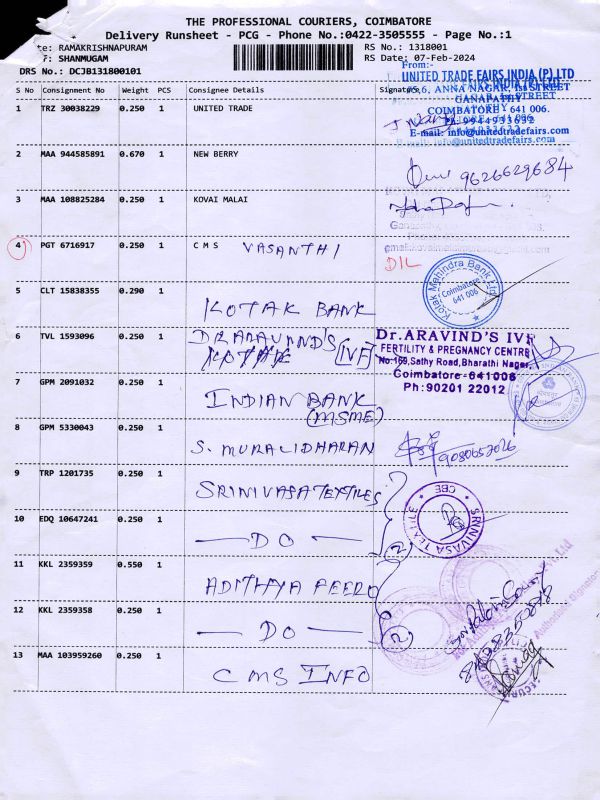 THE PROFESSIONAL COURIERS, COIMBATORE
Delivery Runsheet - PCG - Phone No.:0422-3505555 - Page No.:1
te: RAMAKRISHNAPURAM RS No.: 1318001
F: SHANMUGAM RS Date: 07-Feb-2024
DRS No.: DCJB131800101
From:-
UNITED TRADE FAIRS INDIA (P) LTD
S No Consignment No Weight PCS Consignee Details Signature
#6, ANNA NAGAR, 1st STREET
GANAPATHY
COIMBATORE - 641 006.
E-mail: info@unitedtradefairs.com
1 TRZ 30038229 0.250 1 UNITED TRADE
2 MAA 944585891 0.670 1 NEW BERRY 9626629684
3 MAA 108825284 0.250 1 KOVAI MALAI
4 PGT 6716917 0.250 1 C M S VASANTHI D/L
Kotak Mahindra Bank Ltd
Coimbatore
641 006
5 CLT 15838355 0.290 1 KOTAK BANK
6 TVL 1593096 0.250 1 DR ARAVIND'S [IVF]
Dr.ARAVIND'S IVF
FERTILITY & PREGNANCY CENTRE
No.169,Sathy Road,Bharathi Nagar,
Coimbatore-641006
Ph:90201 22012
7 GPM 2091032 0.250 1 INDIAN BANK
(MSME)
8 GPM 5330043 0.250 1 S. MURALIDHARAN 9080657026
9 TRP 1201735 0.250 1 SRINIVASA TEXTILES
SRINIVASA TEXTILE
CBE
10 EDQ 10647241 0.250 1 — DO — 2
11 KKL 2359359 0.550 1 ADITHYA FEERO
12 KKL 2359358 0.250 1 — DO — 2
13 MAA 103959260 0.250 1 CMS INFO